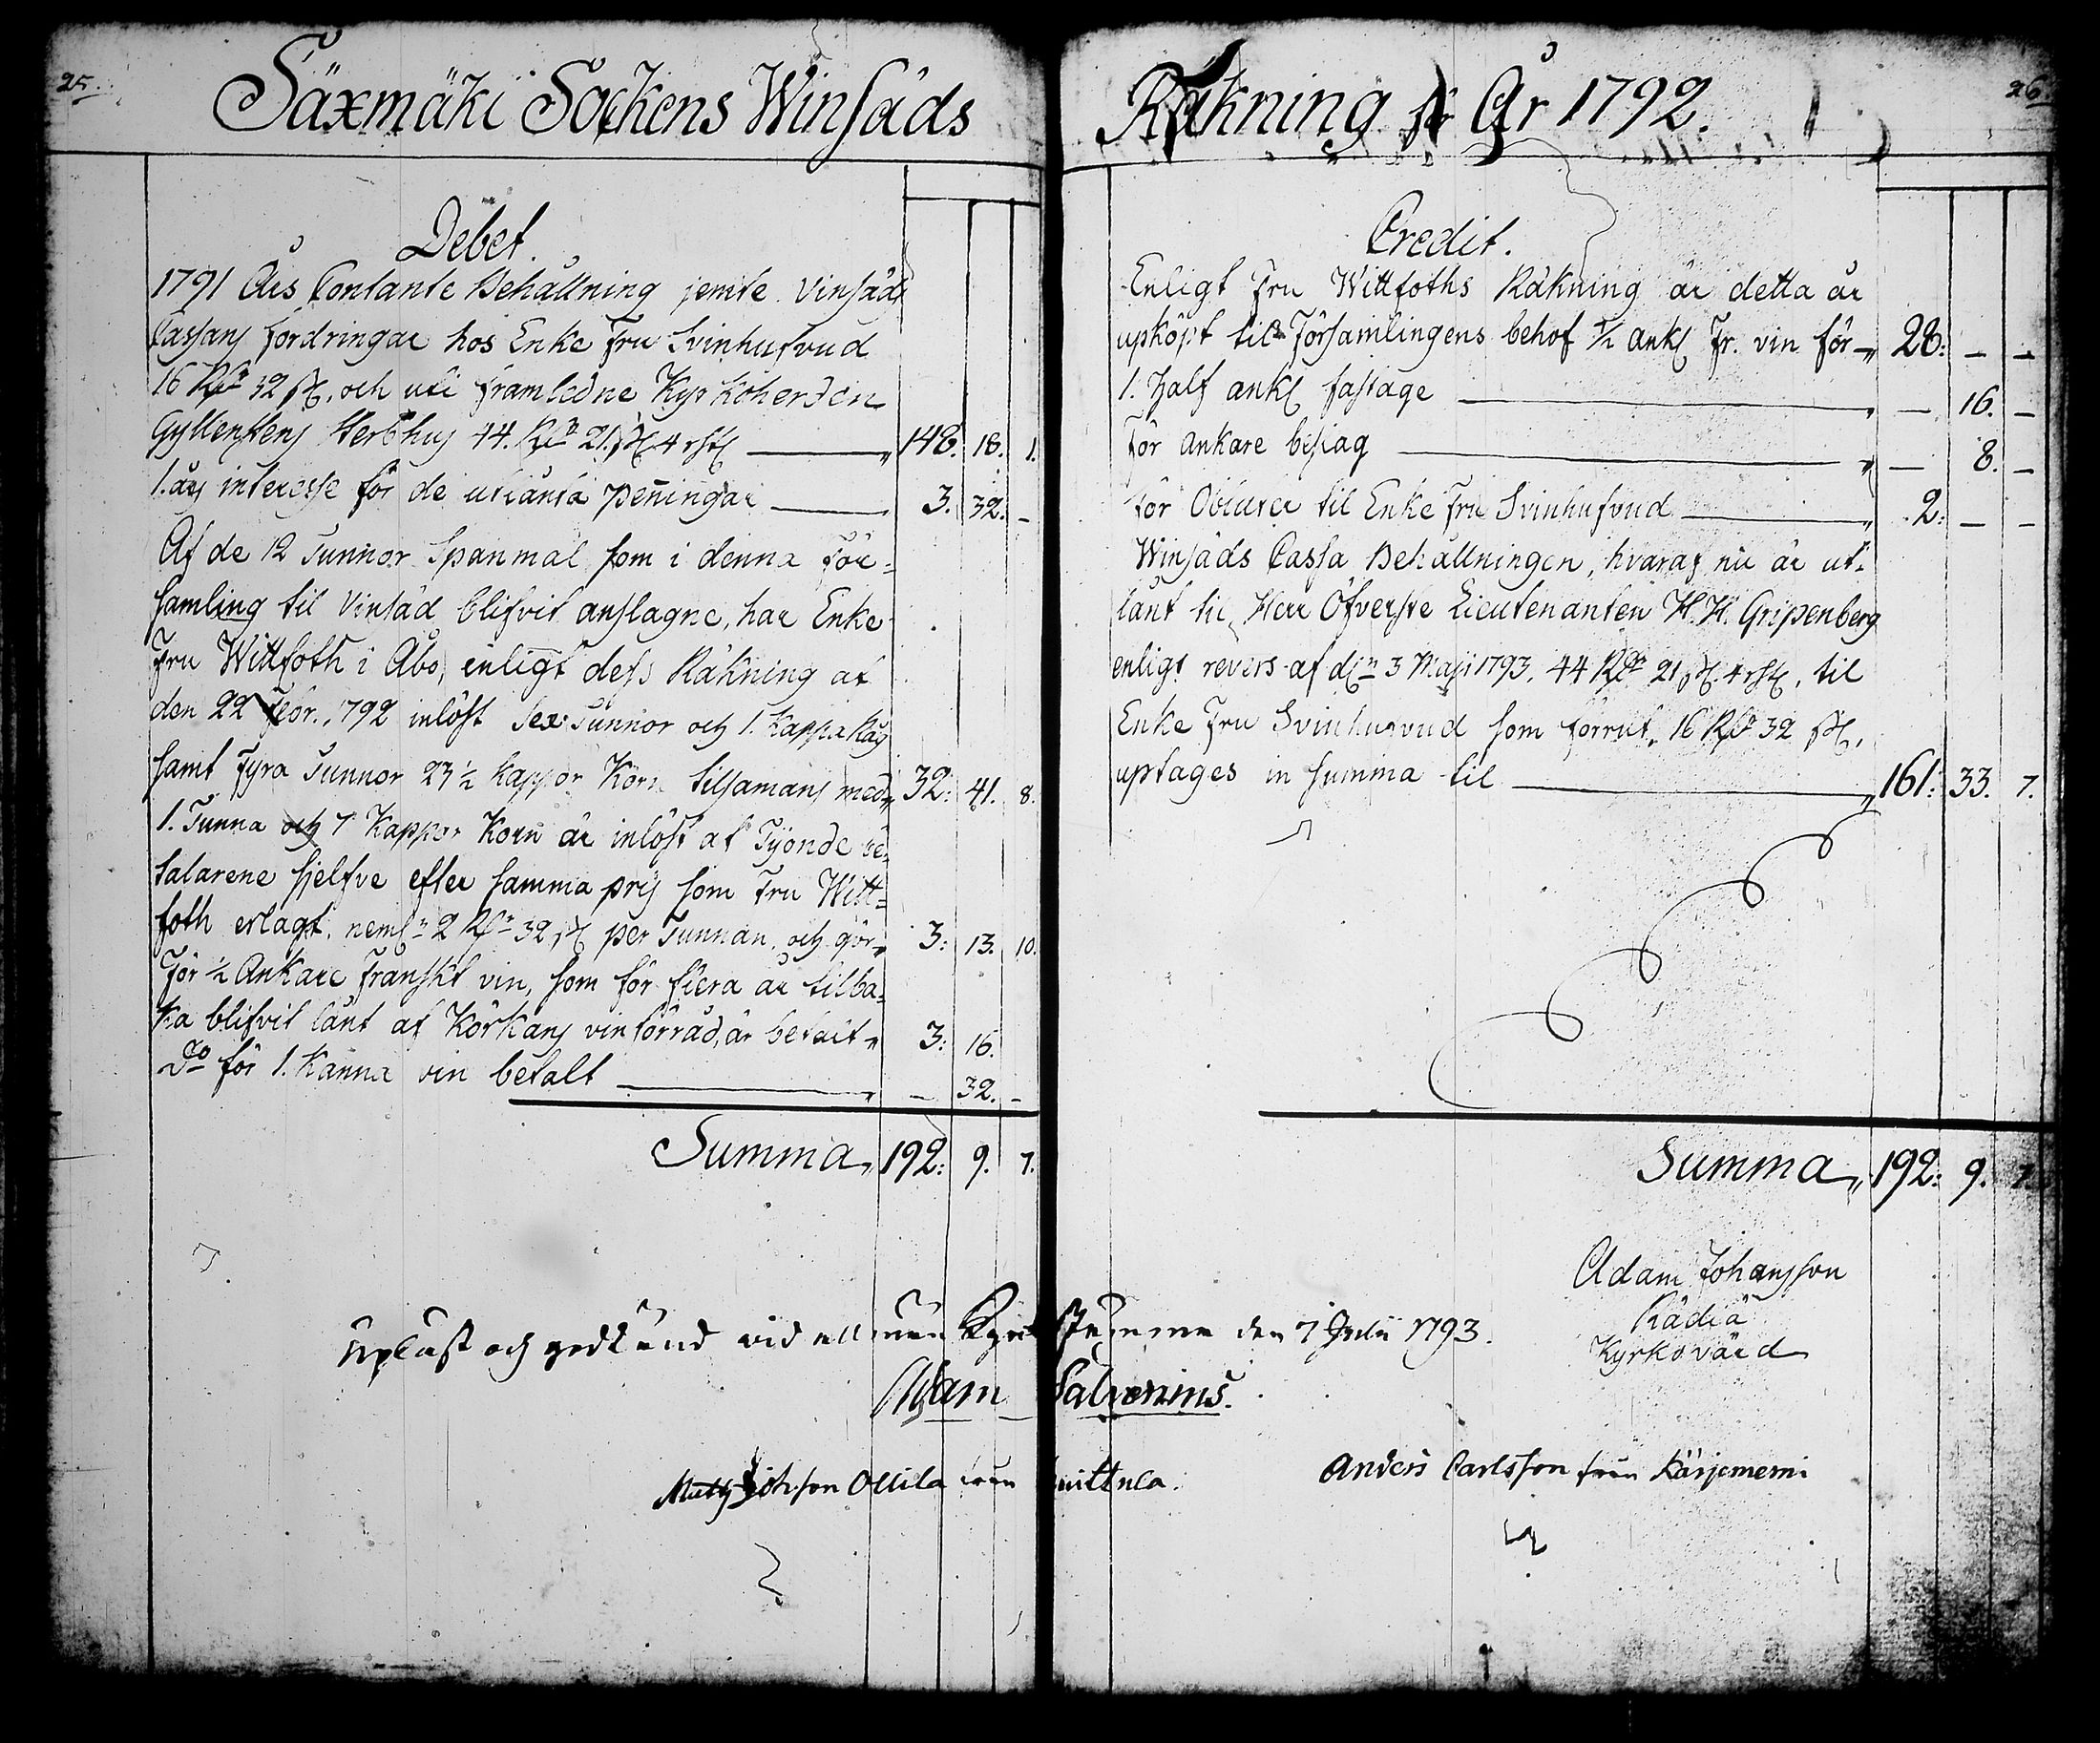 25.
Säxmäki Sockens Winsäds
Debet.
1791 Års Contante Behållning jemte Vinsäds
Cassans fordringar hos Enke Fru Svinhufvud
16 Rd 32 sk, och uti framledne Kyrkoherden
Gyllenstens Sterbhus 44. Rdr 21. sk 4 rst 148. 18. 1.
1. års interesse för de utlånta peningar 3. 32. -
Af de 12 Tunnor Spanmål som i denna För-
samling til Vinsäd blifvit anslagne, har Enke
Fru Wittfoth i Åbo, enligt dess Räkning af
den 22 Febr. 1792 inlöst Sex Tunnor och 1. Kappa Råg
samt Fyra Tunnor 23 1/2 Kappor Korn tilsamans med 32: 41. 8.
1. Tunna och 7 Kappor Korn är inlöst af Tÿonde be-
talarene sjelfve efter samma pris som Fru Witt-
foth erlagt, neml 2 Rdr 32 sk per Tunnan, och gör 3: 13. 10.
För 1/2 Ankare Franskt vin, som för flera år tilba-
ka blifvit lånt af Körkans vinförråd, är betalt 3: 16.
Do för 1. Kanna vin betalt - 32. -
Summa 192: 9. 7.
26.
Räkning för År 1792.
Credit.
Enligt Fru Wittfoths Räkning är detta år
upköpt til Församlingens behof 1/2 ank Fr. vin för 28: - -
1. Half ank fastage - 16. -
För ankare beslag - 8. -
För Oblater til Enke Fru Svinhufvud 2: - -
Winsäds Cassa Behållningen, hvaraf nu är ut-
lånt til Herr Öfverste Lieutenanten H. H. Gripenberg
enligt revers af den 3 Maji 1793. 44 Rdr 21 sk. 4 rst, til
Enke Fru Svinhufvud som förrut, 16 Rdr 32 sk,
uptages in summa til 161: 33. 7.
Summa 192: 9. 7.
Adam Johansson
Rädiä
Kyrkovärd
Upläst och godkänd vid allmän Kyrkstämma den 7 Julii 1793.
Adam Salvenius.
Matts Johsson Ollila från
Anders Carlsson från Kärjemiemi